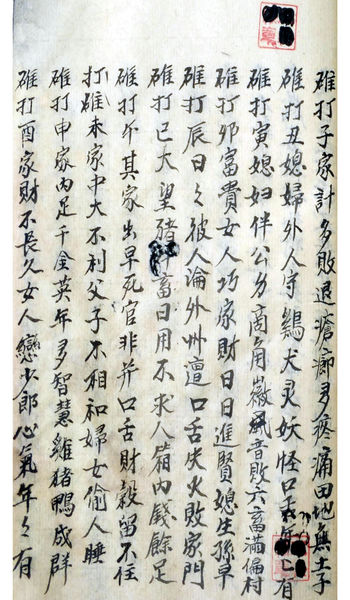 碓打子家計多敗退瘡癤多疼痛田地無主子
碓打丑媳婦外人守鷄犬灵妖怪口舌年〻有
碓打寅媳妇伴公勿商角徽音敗六畜滿偏村
碓打卯富貴女人巧家財日日進賢媳生孫早
碓打辰日〻被人淪外州遭口舌失火敗家門
碓打巳大望猪畜日用不求人箱内錢餘足
碓打午其家出早死官非并口舌財穀留不住
打碓未家中大不利父子不相和婦女偷人睡
碓打申家内足千金英年多智慧雞猪鴨成群
碓打酉家財不長久女人戀少郎心氣年〻有